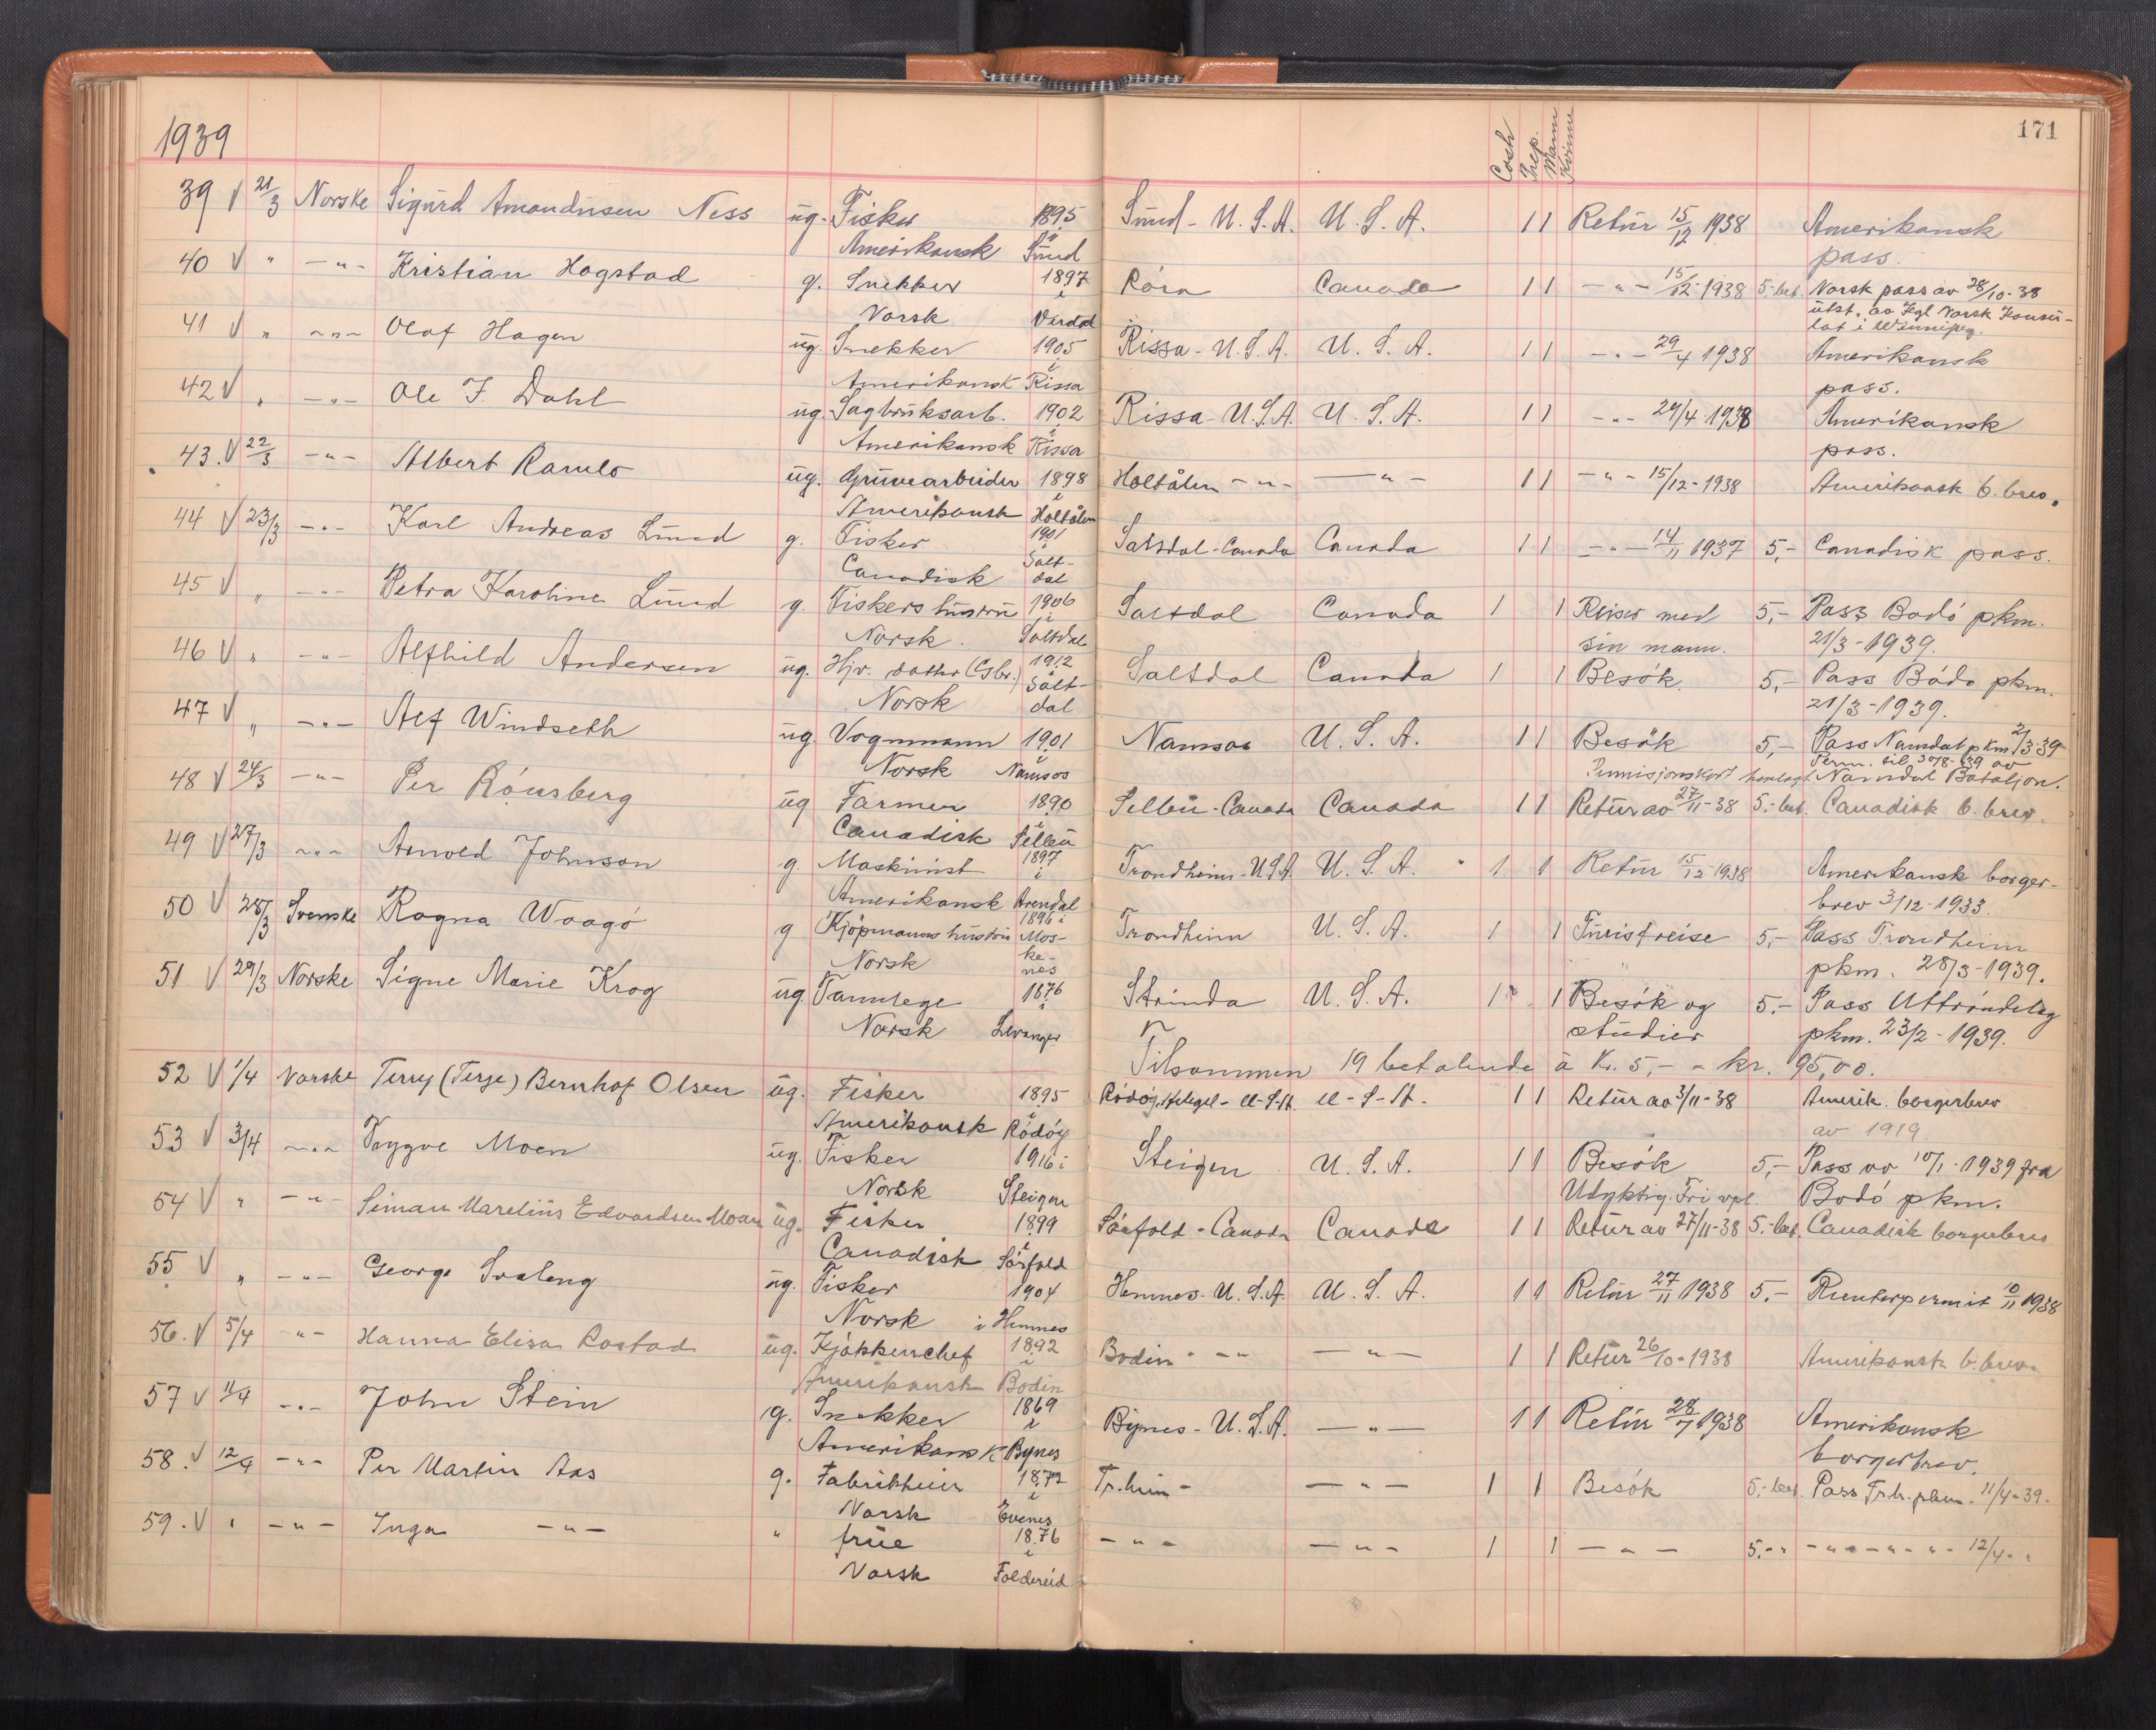 1939
171
Cash Prep. Mann Kvinne
39 V 21/3 Norske Sigurd Amandusen Ness ug. Fisker 1895 Smed - U.S.A. U.S.A. 1 1 Retur 15/12 1938 Amerikansk
Amerikansk pass.
40 V " -"- Kristian Hogstad g. Snekker 1897 Røra Canada 1 1 -"- 15/12-1938 5,-bet. Norsk pass av 28/10-38
i utst. av Kgl Norsk Konsu-
Norsk Verdal lat i Winnipeg.
41 V " -"- Olaf Hagen ug. Snekker 1905 Rissa - U.S.A. U.S.A. 1 1 -"- 29/4 1938 Amerikansk
Amerikansk i Rissa pass.
42 V " -"- Ole J. Dahl ug. Sagbruksarb. 1902 Rissa - U.S.A. U.S.A. 1 1 -"- 29/4 1938 Amerikansk
Amerikansk i Rissa pass.
43. V 22/3 -"- Albert Ramlo ug. Gruvearbeider 1898 Holtålen -"- -"- 1 1 -"- 15/12-1938 Amerikansk b.brev.
Amerikansk i Holtålen
44 V 23/3 -"- Karl Andreas Lund g. Fisker 1901 Saltdal-Canada Canada 1 1 -"- 14/11 1937 5,- Canadisk pass.
Canadisk i Salt-
dal
45 V " -"- Petra Karoline Lund g. Fiskers hustru 1906 Saltdal Canada 1 1 Reiser med 5,- Pass Bodø pkm.
Norsk. i Saltdal sin mann. 21/3-1939.
46 V " -"- Alfhild Andersen ug. Hjv. datter (Gbr.) 1912 Saltdal Canada 1 1 Besøk 5,- Pass Bodø pkm.
Norsk i Salt-
dal 21/3-1939.
47 V " -"- Alf Windseth ug. Vognmann 1901 Namsos U.S.A. 1 1 Besøk 5,- Pass Namdal pkm 2/3 39
Norsk i Namsos Perm. til 30/8-39 av
Permisjonskort fremlagt Namdal Bataljon.
48 V 24/3 -"- Per Rønsberg ug Farmer 1890 Selbu-Canada Canada 1 1 Retur av 27/11-38 5,-bet. Canadisk b.brev.
Canadisk i Selbu
49 V 27/3 -"- Arnold Johnson g. Maskinist 1897 Trondheim-USA. U.S.A. " 1 1 Retur 15/12-1938 Amerikansk borger-
Amerikansk i Arendal brev 3/12-1933.
50 V 28/3 Svenske Ragna Waagø g Kjøpmanns hustru 1896 i Trondheim U.S.A. 1 1 Turistreise 5,- Pass Trondheim
Norsk Mos-
ke-
nes pkm. 28/3-1939.
51 V 29/3 Norske Signe Marie Krog ug Tannlege 1876 Strinda U.S.A. 1 1 Besøk og 5.- Pass Uttrøndelag
Norsk i Levanger studier pkm. 23/2-1939.
Tilsammen 19 betalende à Kr. 5,- = kr. 95,00.
52 V 1/4 Norske Terry (Terje) Bernhof Olsen ug. Fisker 1895 Rødøy, Helgel-U-S-A. U-S-A. 1 1 Retur av 3/11-38 Amerik. borgerbrev
Amerikansk i Rødøy av 1919.
53 V 3/4 -"- Trygve Moen ug. Fisker 1916 i Steigen U.S.A. 1 1 Besøk 5,- Pass av 10/1-1939 fra
Norsk Steigen Udyktig. Fri vpl. Bodø pkm.
54 V " -"- Siman Marelius Edvardsen Moan ug. Fisker 1899 Sørfold-Canada Canada 1 1 Retur av 27/11-38 5,-bet. Canadisk borgerbrev
Canadisk i Sørfold
55 V " -"- George Svaleng ug. Fisker 1904 Hemnes-U.S.A. U.S.A. 1 1 Retur 27/11 1938 5,- Reenterpermit 10/11 1938
Norsk i Hemnes
56. V 5/4 -"- Hanna Elisa Rostad ug. Kjøkkenchef 1892 Bodin " -"- -"- 1 1 Retur 26/10-1938 Amerikansk b.brev
Amerikansk i Bodin
57 V 11/4 -"- John Stein g. Snekker 1869 Bynes-U.S.A. -"- 1 1 Retur 28/7 1938 Amerikansk
Amerikansk i Bynes borgerbrev.
58. V 12/4 -"- Per Martin Aas g. Fabrikkeier 1872 Tr.heim- -"- 1 1 Besøk 5,-bet. Pass Tr.h. pkm. 11/4-39.
Norsk i Evenes
59. V " -"- Inga -"- " frue 1876 -"- -"- 1 1 -"- 5,-" -"-"-"- 12/4-"
Norsk i Foldereid